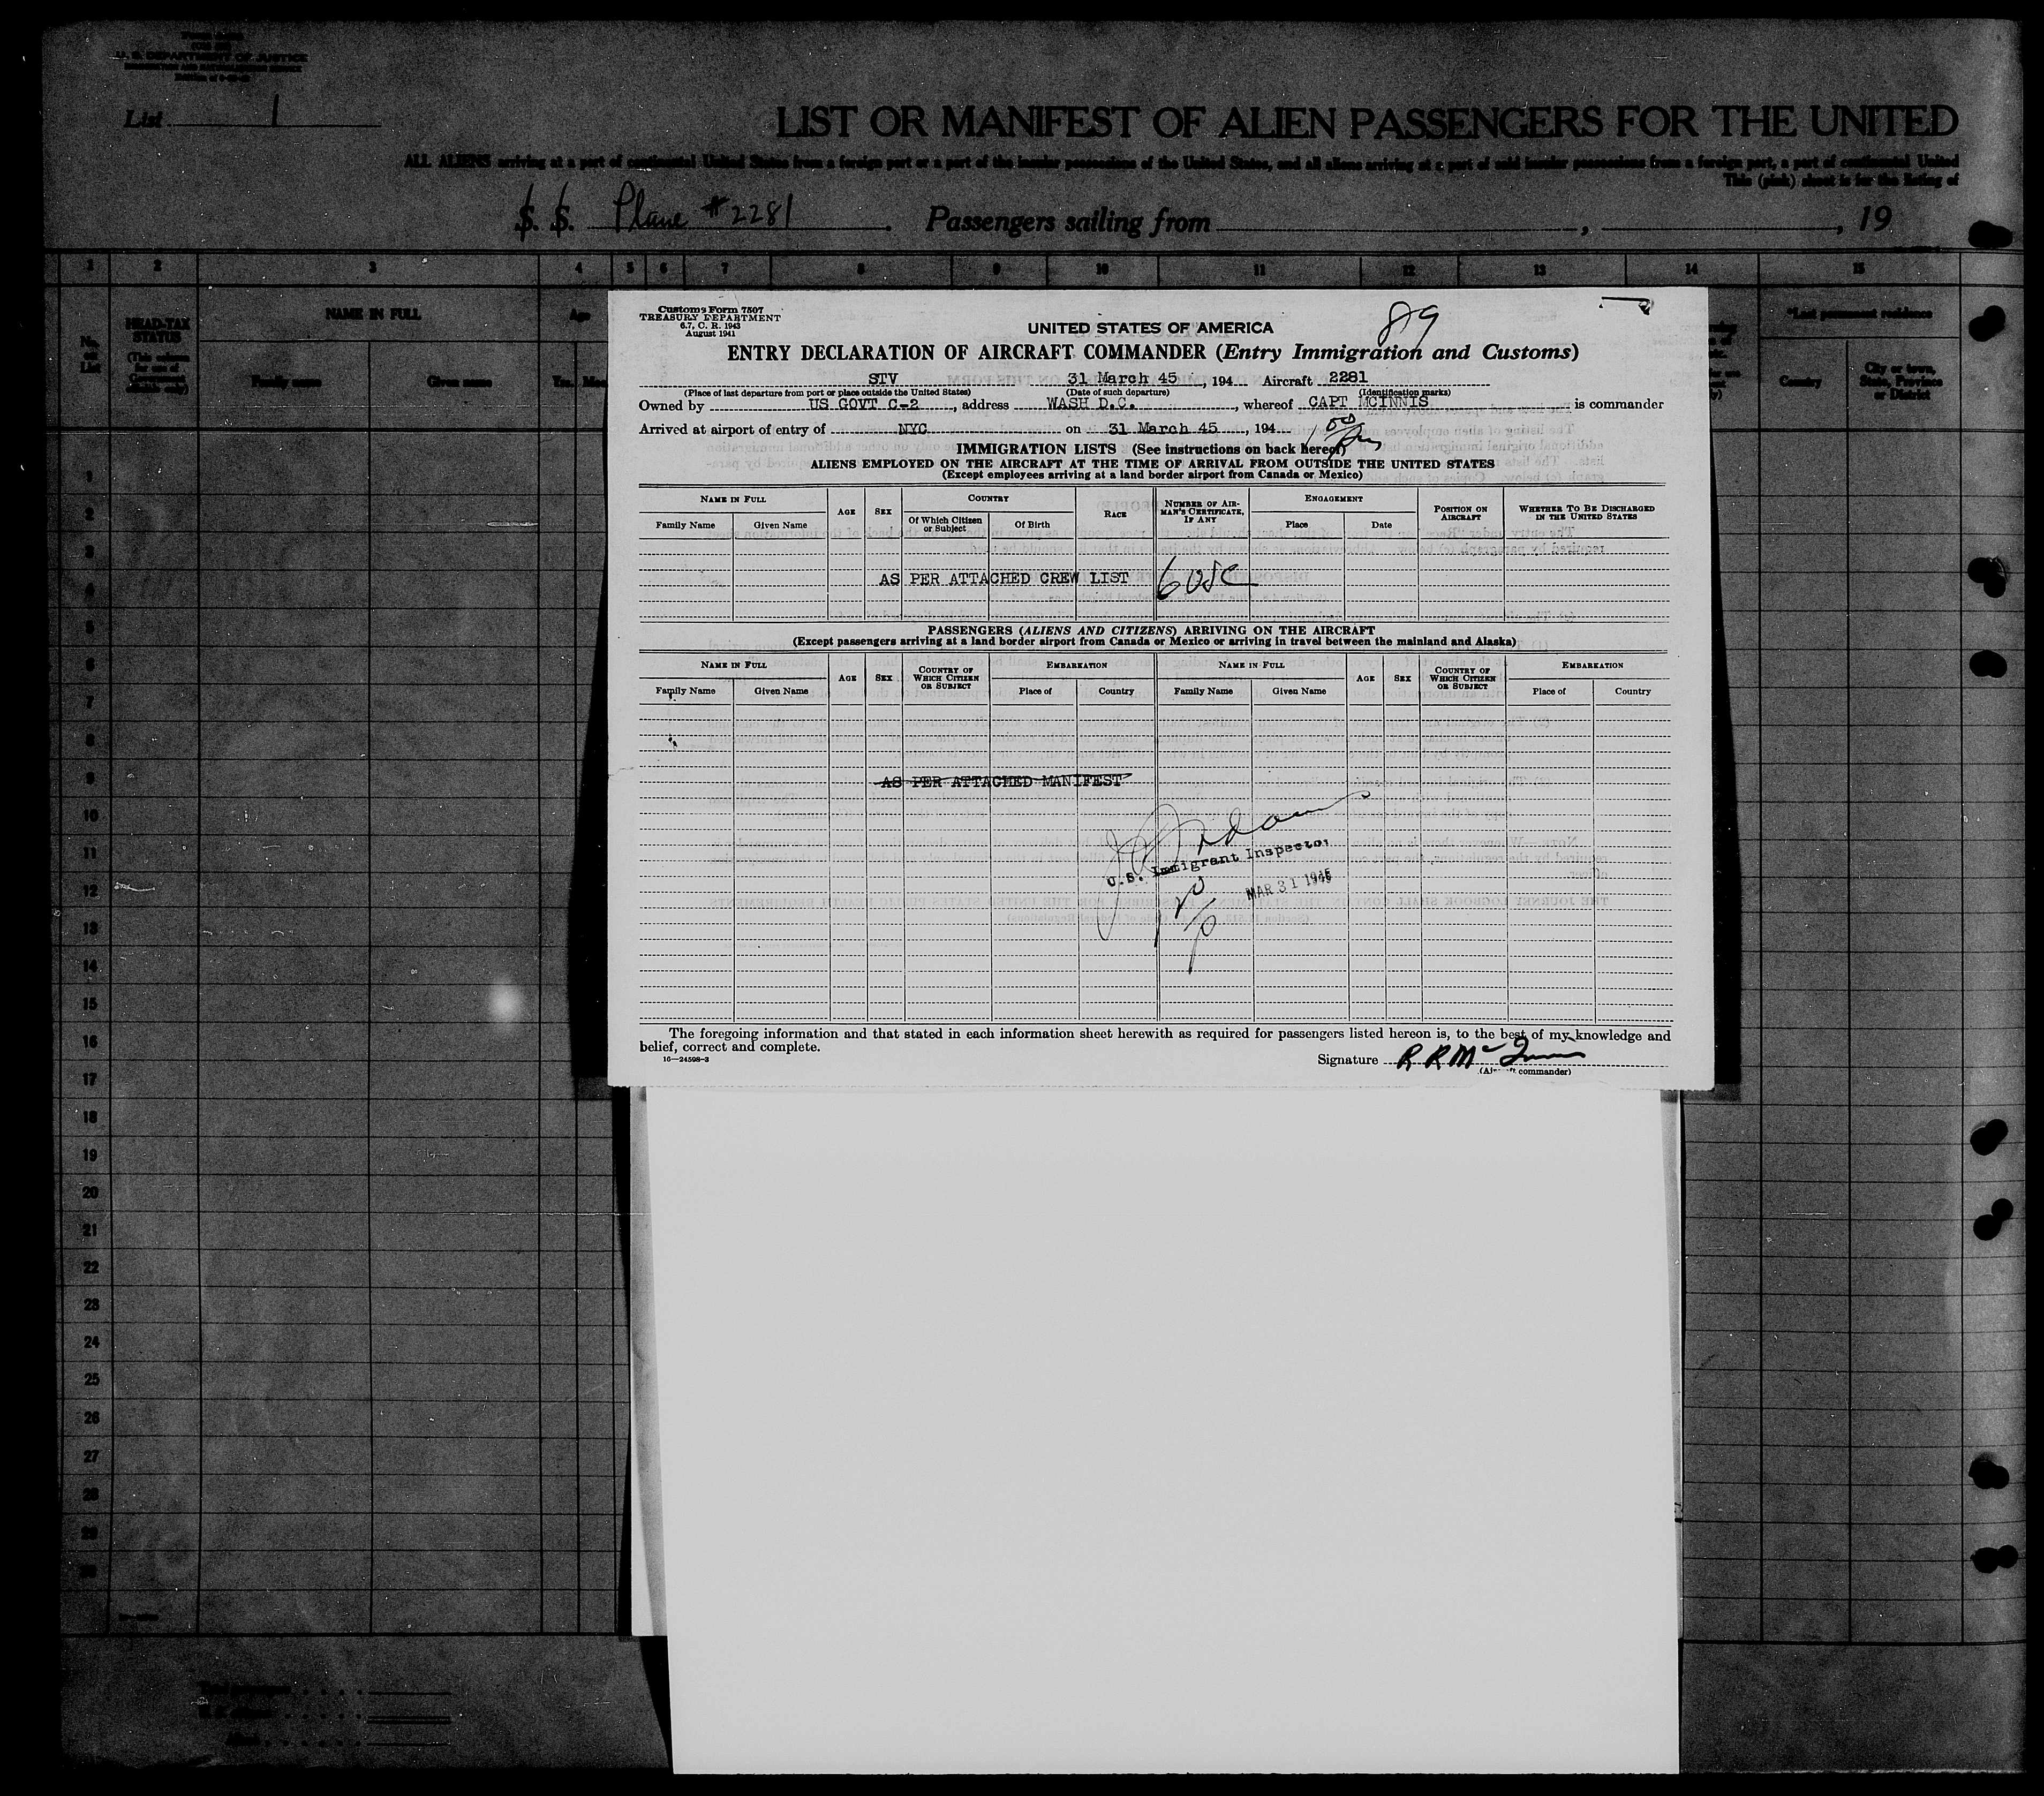 U. S. DEPARTMENT OF JUSTICE
List 1
LIST OR MANIFEST OF ALIEN PASSENGERS FOR THE UNITED
ALL ALIENS arriving at a port of continental United States from a foreign port or a port of the insular possessions of the United States, and all aliens arriving at a port of said insular possessions from a foreign port, a port of continental United
This (pink) sheet is for the listing of
S. S. Plane #2281. Passengers sailing from , , 19
1 2 3 4 5 6 7 8 9 10 11 12 13 14 15
No. on List
HEAD-TAX STATUS
NAME IN FULL
Age
*Last permanent residence
Family name Given name Yrs. Mos.
Country
City or town, State, Province or District
Customs Form 7507
TREASURY DEPARTMENT
6.7, C. R. 1943
August 1941
89
UNITED STATES OF AMERICA
ENTRY DECLARATION OF AIRCRAFT COMMANDER (Entry Immigration and Customs)
STV 31 March 45, 194 Aircraft 2281
(Place of last departure from port or place outside the United States) (Date of such departure) (Identification marks)
Owned by US GOVT C-2, address WASH D.C., whereof CAPT MCINNIS is commander
Arrived at airport of entry of NYC on 31 March 45, 194
IMMIGRATION LISTS (See instructions on back hereof)
ALIENS EMPLOYED ON THE AIRCRAFT AT THE TIME OF ARRIVAL FROM OUTSIDE THE UNITED STATES
(Except employees arriving at a land border airport from Canada or Mexico)
NAME IN FULL AGE SEX COUNTRY RACE NUMBER OF AIRMAN'S CERTIFICATE, IF ANY ENGAGEMENT POSITION ON AIRCRAFT WHETHER TO BE DISCHARGED IN THE UNITED STATES
Family Name Given Name Of Which Citizen or Subject Of Birth Place Date
AS PER ATTACHED CREW LIST 6 USC
PASSENGERS (ALIENS AND CITIZENS) ARRIVING ON THE AIRCRAFT
(Except passengers arriving at a land border airport from Canada or Mexico or arriving in travel between the mainland and Alaska)
NAME IN FULL AGE SEX COUNTRY OF WHICH CITIZEN OR SUBJECT EMBARKATION NAME IN FULL AGE SEX COUNTRY OF WHICH CITIZEN OR SUBJECT EMBARKATION
Family Name Given Name Place of Country Family Name Given Name Place of Country
AS PER ATTACHED MANIFEST
U.S. Immigrant Inspector
MAR 31 1945
The foregoing information and that stated in each information sheet herewith as required for passengers listed hereon is, to the best of my knowledge and
belief, correct and complete.
16—24598-3
Signature R R McInnis
(Aircraft commander)
1
2
3
4
5
6
7
8
9
10
11
12
13
14
15
16
17
18
19
20
21
22
23
24
25
26
27
28
29
30